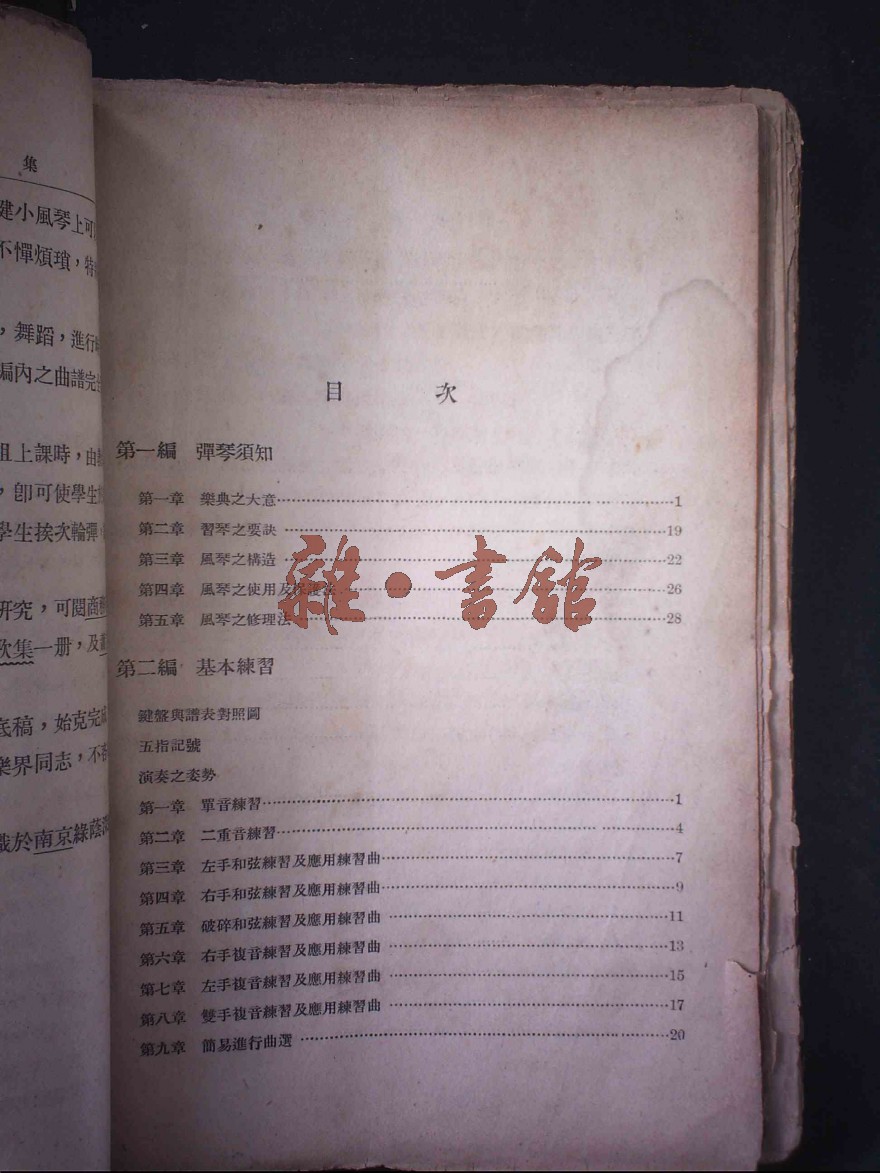 集
鍵小風琴上可
不憚煩瑣，特
，舞蹈，進行
編內之曲譜完全
組上課時，由
，即可使學生
學生挨次輪彈
研究，可閱商
歌集一册，及
底稿，始克完成
樂界同志，不吝
識於南京綠蔭
目 次
第一編 彈琴須知
第一章 樂典之大意 1
第二章 習琴之要訣 19
第三章 風琴之構造 22
第四章 風琴之使用及保護法 26
第五章 風琴之修理法 28
雜·書館
第二編 基本練習
鍵盤與譜表對照圖
五指記號
演奏之姿勢
第一章 單音練習 1
第二章 二重音練習 4
第三章 左手和弦練習及應用練習曲 7
第四章 右手和弦練習及應用練習曲 9
第五章 破碎和弦練習及應用練習曲 11
第六章 右手複音練習及應用練習曲 13
第七章 左手複音練習及應用練習曲 15
第八章 雙手複音練習及應用練習曲 17
第九章 簡易進行曲選 20